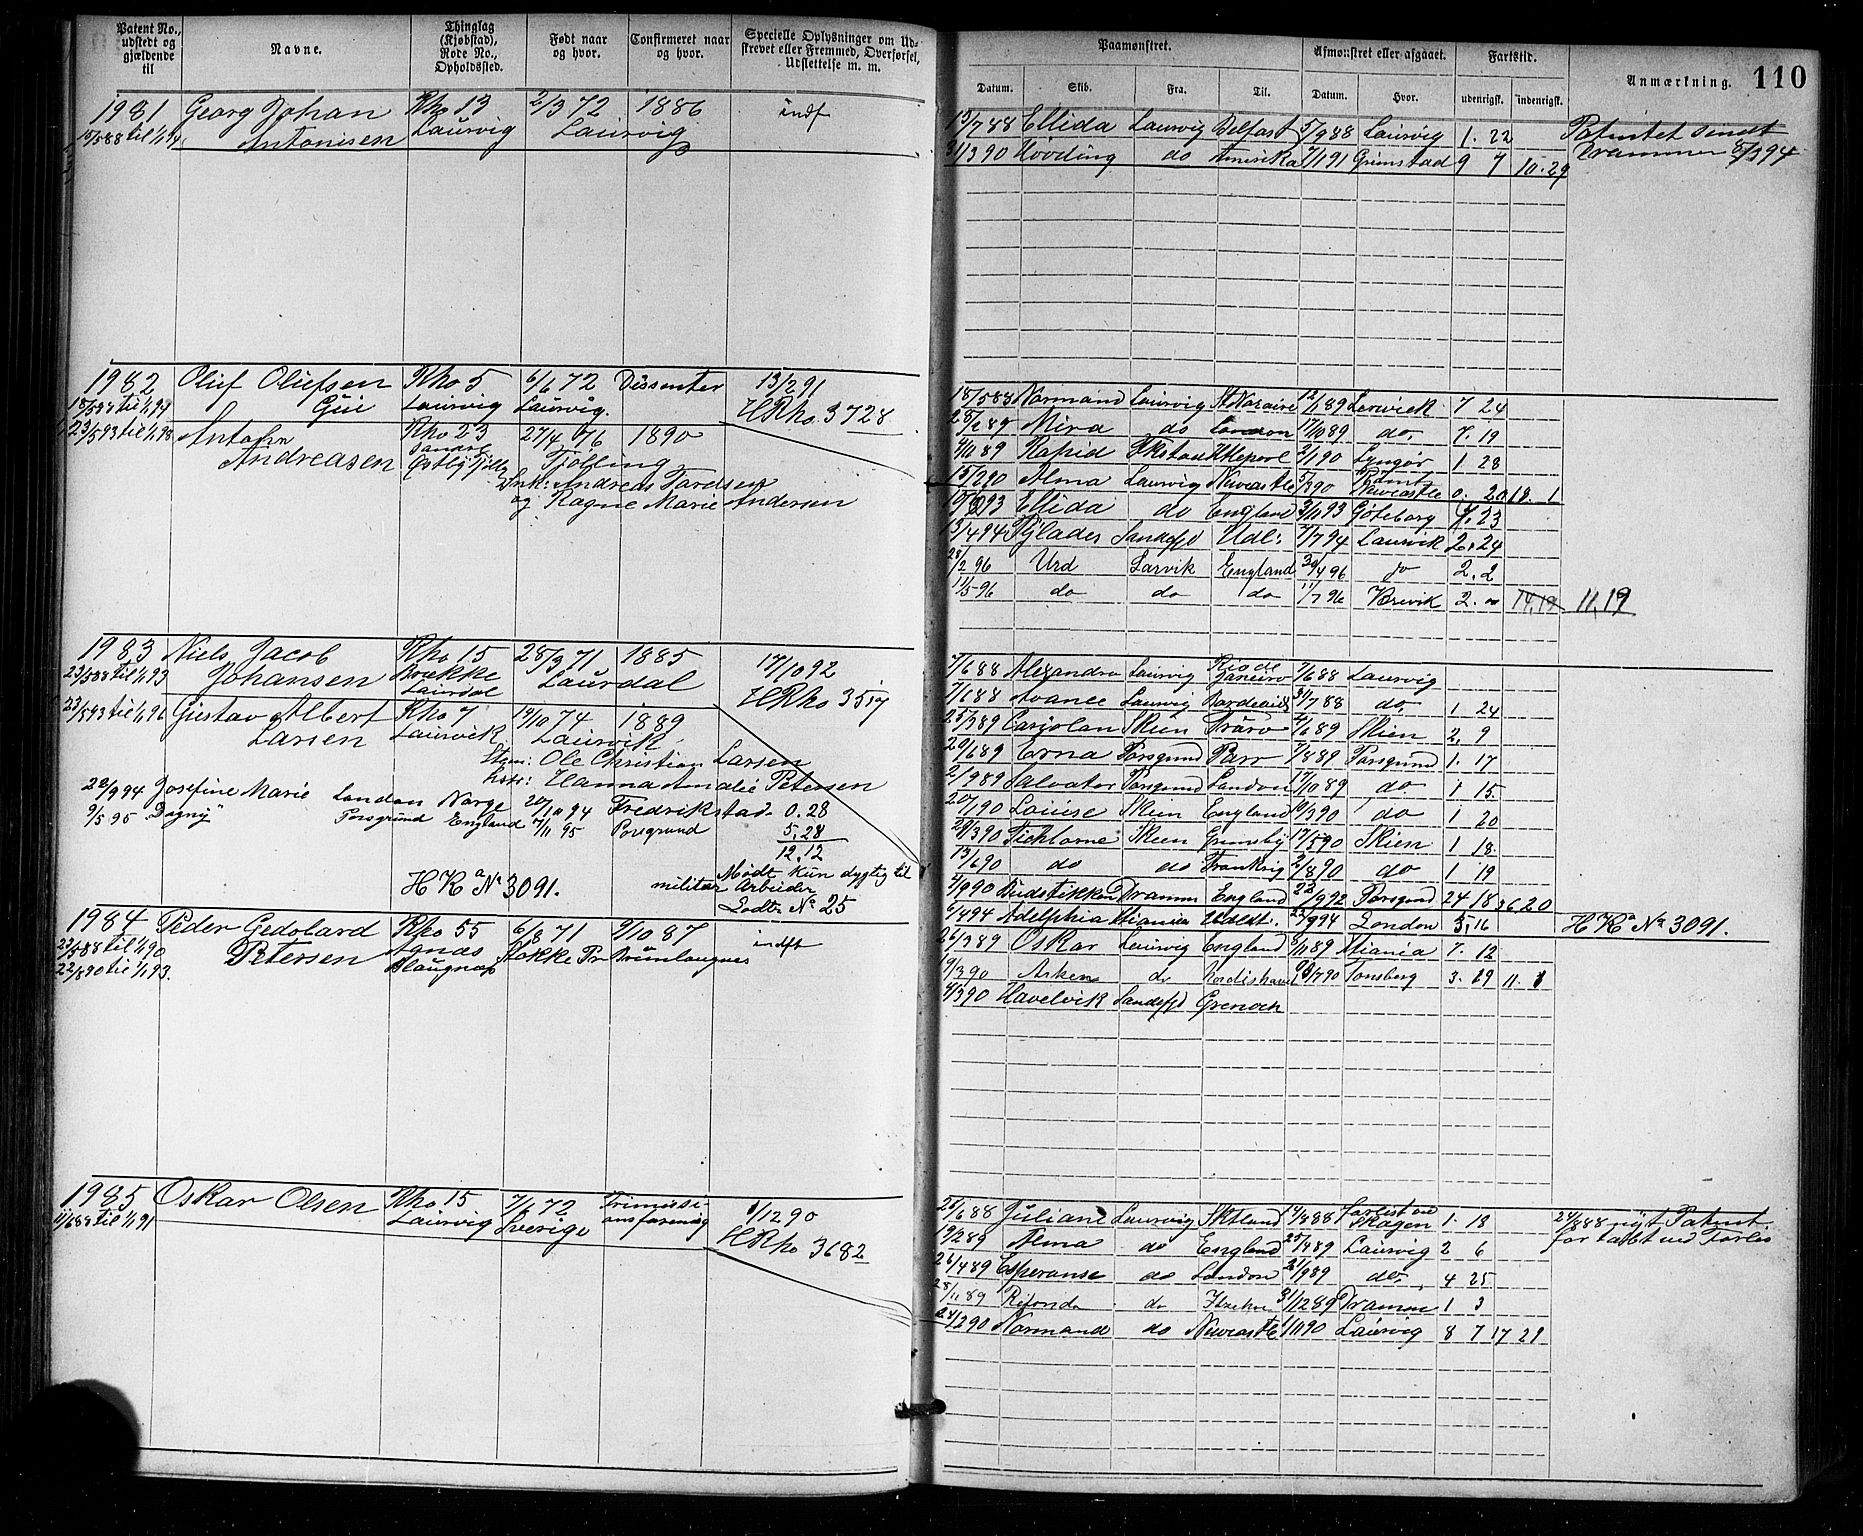 Patent No., udstedt og gjældende til
Navne.
Thinglag (Kjøbstad), Rode No., Opholdssted.
Født naar og hvor.
Confirmeret naar og hvor.
Specielle Oplysninger om Udskrevet eller Fremmed, Overførsel, Udslettelse m. m.
1981 Georg Johan Rho 13 2/3 72 1886 indf
15/5 88 til 1/1 94 Antonisen Laurvig Laurvig
1982 Oluf Olufsen Rho 5 6/6 72 Dissenter 13/2 91
18/5 88 til 1/1 94 Laurvig Laurvig. HRho 3728
23/5 93 til 1/1 98 Anton Rho 23 27/4 76 1890
Andreasen Tjølling
Andreas
og Ragne Marie Andersen
1983 Niels Jacob Rho 15 28/3 71 1885 17/10 92
23/5 88 til 1/1 93 Johansen Brekke Laurdal HRho 3519
Laurdal
23/5 93 til 1/1 96 Gustav Albert Rho 7 19/10 74 1889
Larsen Laurvik Laurvik
Ole Christian Larsen
Hanna Amalie Petersen
22/9 94 Josefine Marie London Norge 20/10 94 Fredrikstad 0.28
9/5 95 Dagny Porsgrund England 7/11 95 Porsgrund 5,28
12,12
Mødt kun dygtig til
H Ka No 3091. militær Arbeider
Lodtr. No 25
1984 Peder Gedobard Rho 55 6/8 71 9/10 87 indft
23/5 88 til 1/1 90 Petersen Agnæs Stokke Pr Brunlaugnæs
22/2 90 til 1/1 93.
1985 Oskar Olsen Rho 15 7/1 72
11/6 88 til 1/1 91 Laurvig Sverige 1/12 90
HRho 3682
Paamønstret.
Afmønstret eller afgaaet.
Fartstir.
Anmærkning.
110
Datum. Skib. Fra. Til. Datum. Hvor. udenrigsk. indenrigsk.
15/7 88 Ellida Laurvig Belfast 5/9 88 Laurvig 1. 22 Patentet sendt
31/3 90 Høvding do Amerika 7/1 91 Grimstad 9 7 10. 29 Drammen 8/3 94
18/5 88 Normand Laurvig St Nazaire 12/1 89 Lerwick 7 24
28/2 89 Mira do London 17/10 89 do. 7. 19
4/11 89 Rapid 2/1 90 Lyngør 1 28
15/2 90 Alma Laurvig Newcastle 5/3 90 Rømt Newcastle 0. 20 18. 1
Ellida do England 3/11 93 Gøteborg 4. 23
13/4 94 Pylades Sandefjd Udl: 7/7 94 Laurvik 2. 24
28/2 96 Urd Larvik England 30/4 96 do 2. 2
11/5 96 do do do 11/7 96 Brevik 2. 11,19
7/6 88 Alexandra Laurvig Rio de Janeiro 7/6 88 Laurvig
Avance Laurvig 31/7 88 do. 1 24
Skien 2/6 89 Skien 2, 9
20/6 89 Erna Porsgrund 7/8 89 Porsgrund 1. 17
2/9 89 Salvator Porsgrund London 17/10 89 do 1 15.
Louise Skien England 10/3 90 do 1 20
28/3 90 Skien Grimsby 17/5 90 Skien 1 18.
13/6 90 do do Frankrig 2/8 90 do 1 19
4/9 90 Budstikken Dramm England 22/9 92 Porsgrund 24 18 36 20
6/4 94 Adelphia 22/9 94 London 5, 16 H Ka No 3091.
26/3 89 Oskar Laurvig England 8/11 89 7. 12
19/3 90 Arken do Nordishavet 7 90 Tønsberg 3. 29 11. 1
4/3 90 Havelvik Sandefjd Grenock
25/6 88 Juliane Laurvig 14/8 88 Forlist ved Skagen 1. 18 24/8 88 nyt Patent.
19/2 89 Alma do England 25/4 89 Laurvig 2 6 for tabt ved Forlis
26/4 89 Esperanse do London 21/9 89 do. 4 25
28/11 89 do 31/12 89 Dramm 1 3
24/2 90 Normand do Newcastle 1/11 90 Laurvig 8 7 17 21